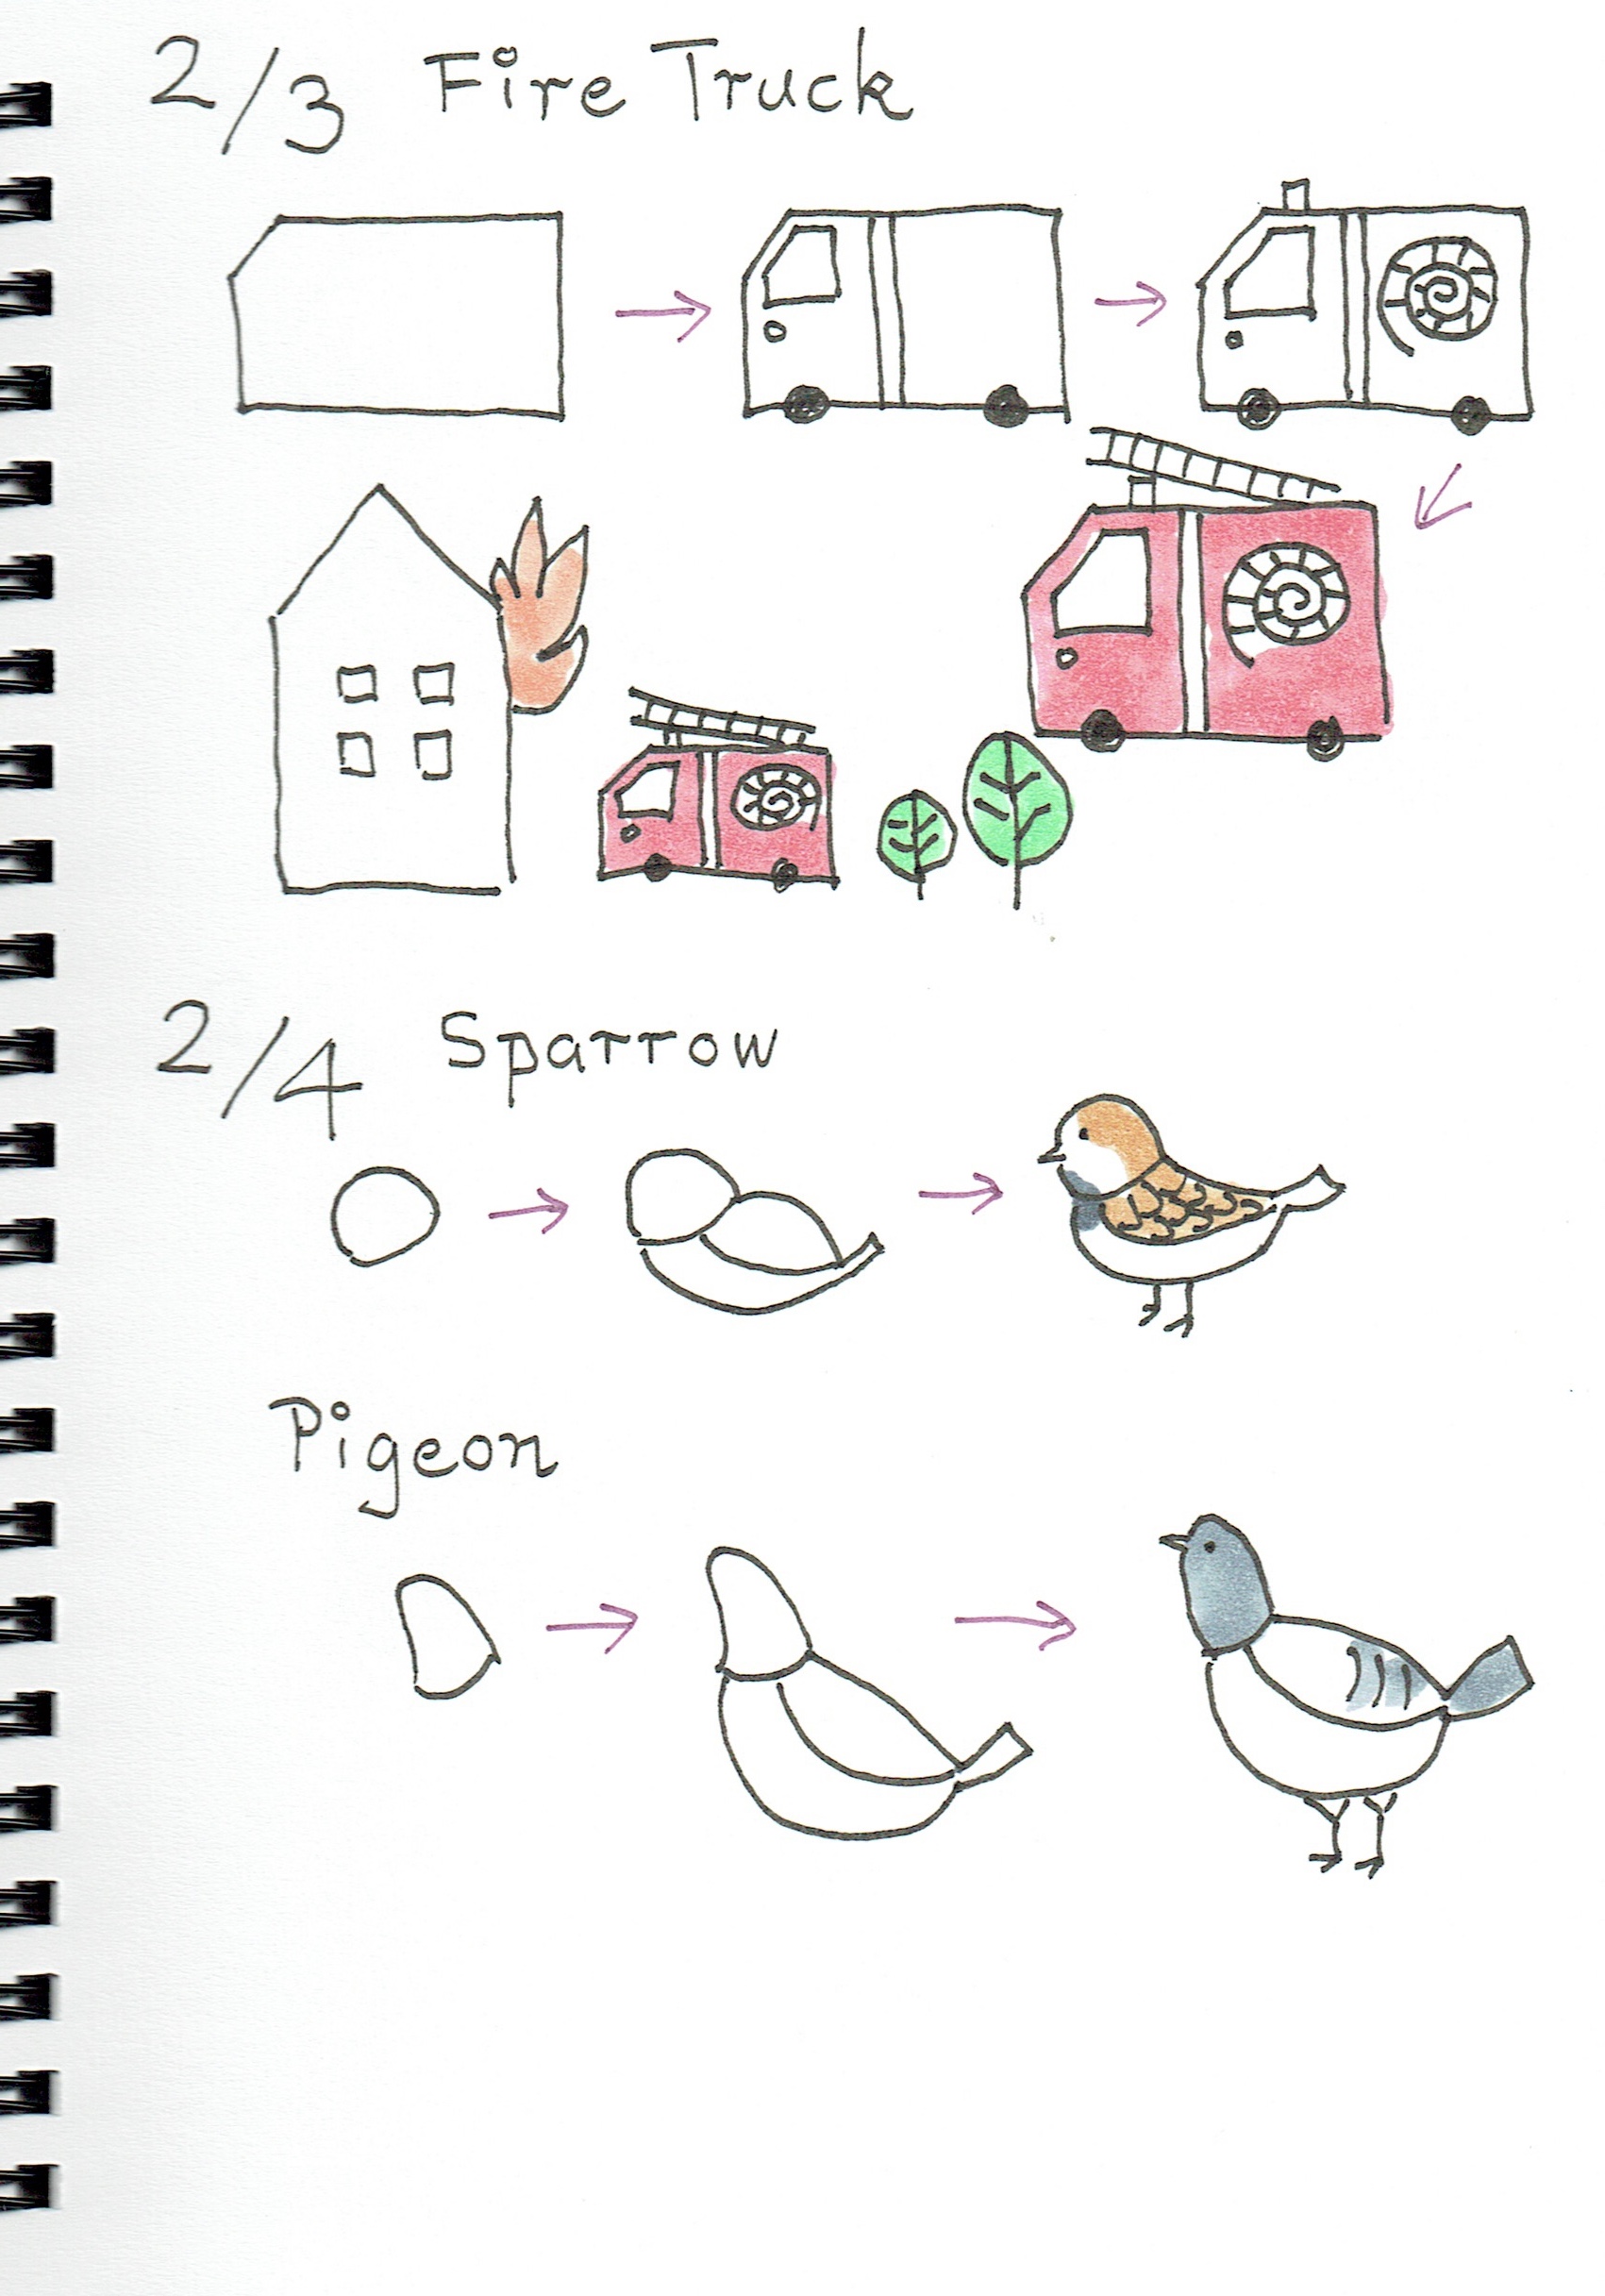 2/3 Fire Truck
2/4 Sparrow
Pigeon